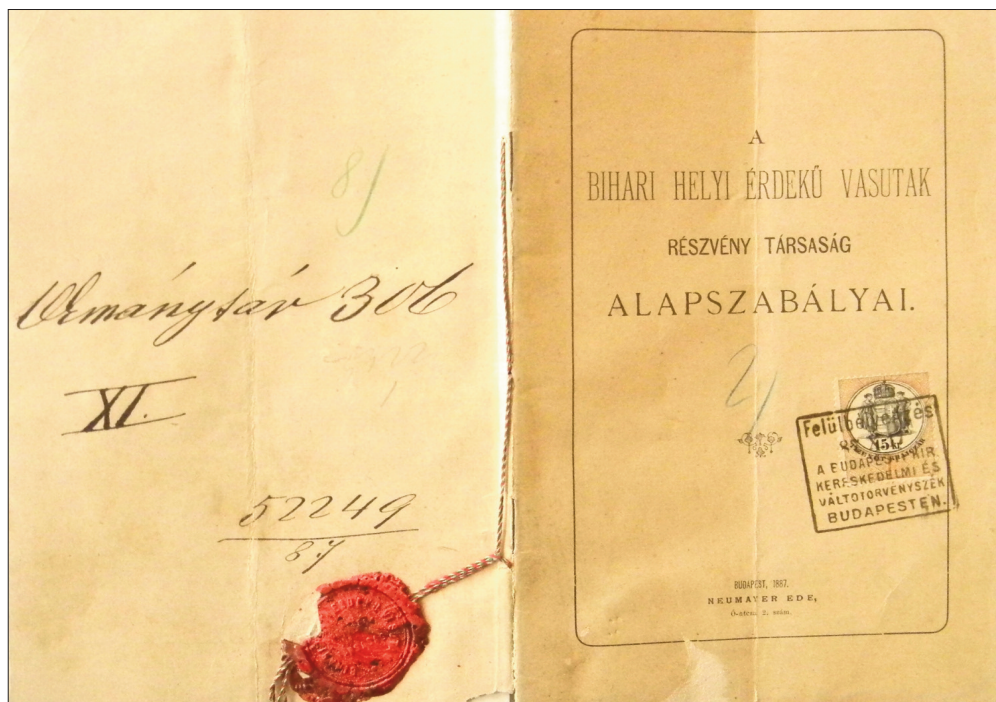 8)
Okmánytár 306
XI.
52249
87
A
BIHARI HELYI ÉRDEKŰ VASUTAK
RÉSZVÉNY TÁRSASÁG
ALAPSZABÁLYAI.
2)
Felülbélyegzés
15 kr
A BUDAPESTI KIR.
KERESKEDELMI ÉS
VÁLTÓTÖRVÉNYSZÉK
BUDAPESTEN.
BUDAPEST, 1887.
NEUMAYER EDE,
Ó-utcza 2. szám.